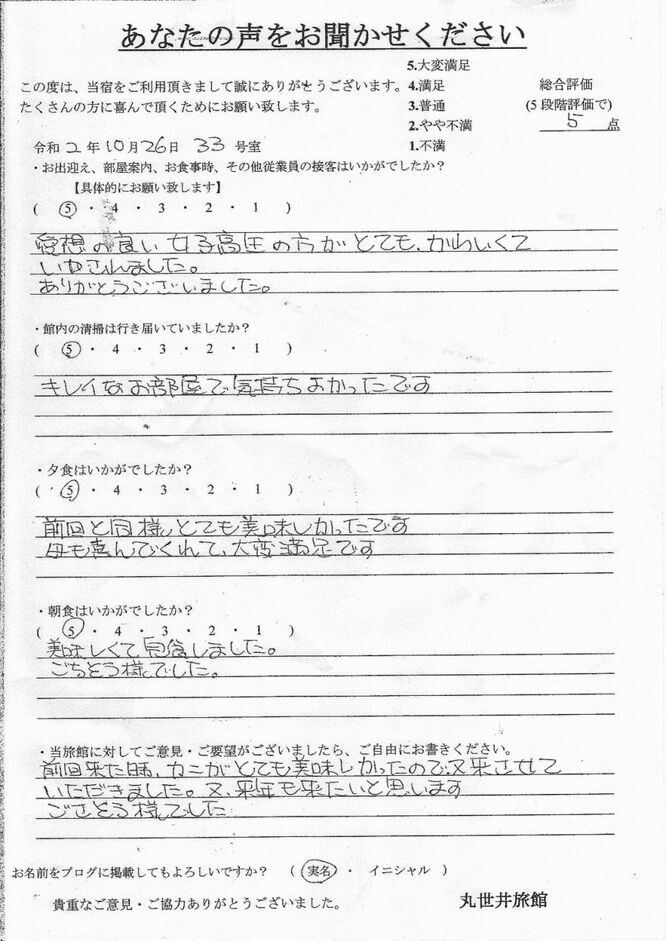 あなたの声をお聞かせください
5.大変満足
この度は、当宿をご利用頂きまして誠にありがとうございます。 4.満足 総合評価
たくさんの方に喜んで頂くためにお願い致します。 3.普通 (5 段階評価で)
2.やや不満 5 点
令和 2 年 10 月 26 日 33 号室 1.不満
・お出迎え、部屋案内、お食事時、その他従業員の接客はいかがでしたか?
【具体的にお願い致します】
( 5 ・ 4 ・ 3 ・ 2 ・ 1 )
愛想の良い女子高生の方がとても、かわいくて
いやされました。
ありがとうございました。
・館内の清掃は行き届いていましたか?
( 5 ・ 4 ・ 3 ・ 2 ・ 1 )
キレイなお部屋で気持ちよかったです
・夕食はいかがでしたか?
( 5 ・ 4 ・ 3 ・ 2 ・ 1 )
前回と同様、とても美味しかったです
母も喜んでくれて、大変満足です
・朝食はいかがでしたか?
( 5 ・ 4 ・ 3 ・ 2 ・ 1 )
美味しくて完食しました。
ごちそう様でした。
・当旅館に対してご意見・ご要望がございましたら、ご自由にお書きください。
前回来た時、カニがとても美味しかったので又来させて
いただきました。又、来年も来たいと思います
ごちそう様でした
お名前をブログに掲載してもよろしいですか? ( 実名 ・ イニシャル )
貴重なご意見・ご協力ありがとうございました。 丸世井旅館